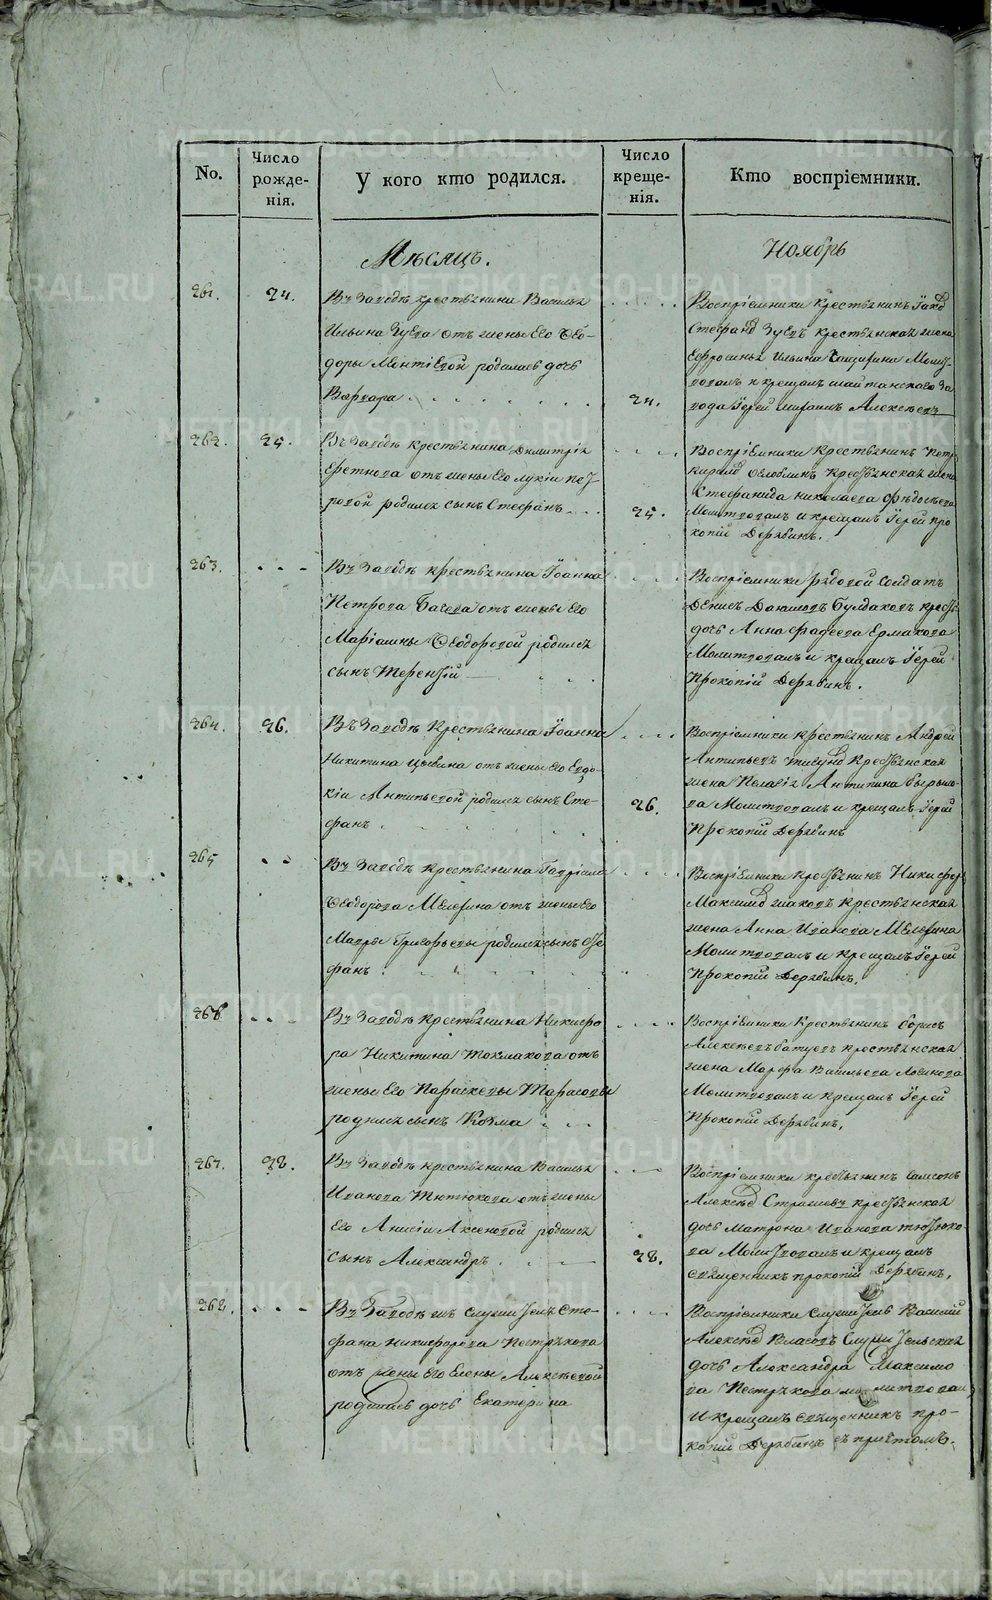 No.
Число рожде- нія.
У кого кто родился.
Число креще- нія.
Кто воспріемники.
Мѣсяцъ.
Ноябрь
261.
24.
Въ Заводѣ крестьянина Василья
Ильина Зуева отъ жены его Ѳео-
доры родилась дочь
Варвара
24.
Воспріемники крестьянинъ
Зуевъ крестьянская жена
Ильина
и крещалъ шайтанскаго За
вода Іерей Алексѣевъ
262.
25.
Въ Заводѣ крестьянина Димитрія
отъ жены его Лукіи Пет-
ровой родился сынъ Стефанъ
25.
Воспріемники крестьянинъ
крестьянская жена
Стефанида Николаева
Молитвовалъ и крещалъ Іерей про
копій Дерябинъ.
263.
Въ Заводѣ крестьянина Іоанна
Петрова отъ жены его
Маріамны Ѳеодоровой родился
сынъ Терентій
Воспріемники рядовой Солдатъ
Денисъ Булдаковъ
дочь Анна Фадѣева Ермакова
Молитвовалъ и крещалъ Іерей
Прокопій Дерябинъ.
264.
26.
Въ Заводѣ крестьянина Іоанна
Никитина отъ жены его Евдо-
кіи Антипьевой родился сынъ Сте-
фанъ
26.
Воспріемники крестьянинъ Андрей
Антипьевъ крестьянская
жена Пелагія Антипина
Молитвовалъ и крещалъ Іерей
Прокопій Дерябинъ
265
Въ Заводѣ крестьянина Гавріила
Ѳеодорова Мелехина отъ жены его
Мавры Григорьевы родился сынъ Сте
фанъ
Воспріемники крестьянинъ Никифоръ
крестьянская
жена Анна Иванова Мелехина
Молитвовалъ и крещалъ Іерей
Прокопій Дерябинъ.
266
Въ Заводѣ крестьянина Никифо
ра Никитина Токмакова отъ
жены его Параскевы Тарасовы
родился сынъ Козма
Воспріемники крестьянинъ Борисъ
Алексѣевъ крестьянская
жена Марфа Васильева Логинова
Молитвовалъ и крещалъ Іерей
Прокопій Дерябинъ.
267.
28.
Въ Заводѣ крестьянина Василья
Иванова Тютюкова отъ жены
его Анисіи Аксеновой родился
сынъ Александръ
28.
Воспріемники крестьянинъ Самсонъ
крестьянская
дочь Матрона Иванова Тютюко-
ва Молитвовалъ и крещалъ
священникъ прокопій Дерябинъ.
268.
Въ Заводѣ Служитель Сте-
фана Никифорова Пестрѣкова
отъ жены его Елены Алексѣевой
родилась дочь Екатерина
Воспріемники Служитель Василій
Власовъ Служительская
дочь Александра Максимо
ва Пестрѣкова молитвовалъ
и крещалъ священникъ про-
копій Дерябинъ съ причтомъ.
METRIKI.GASO-URAL.RU